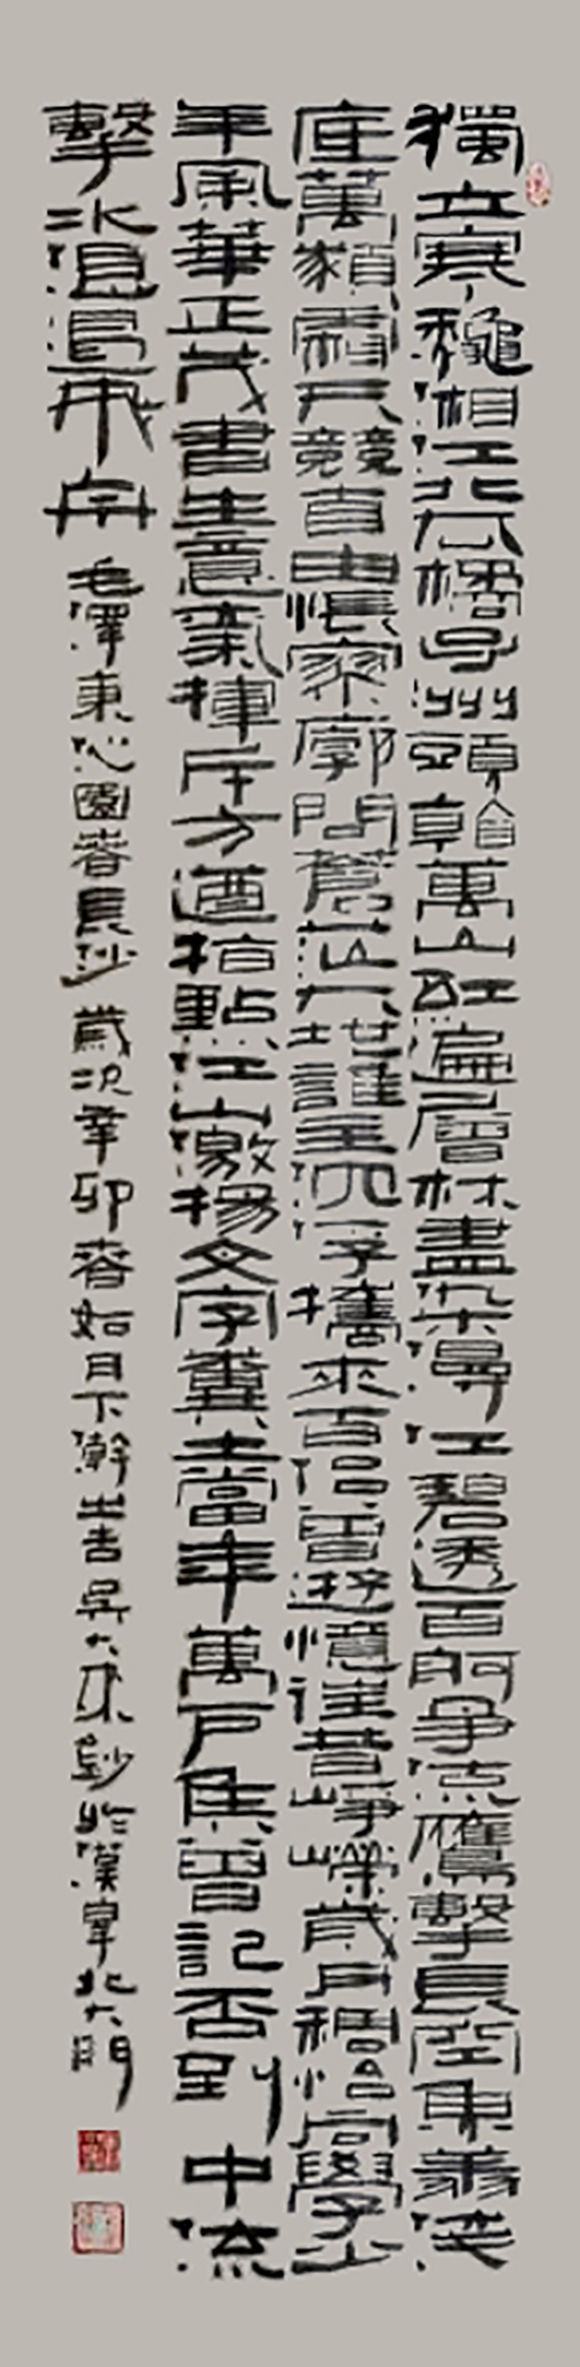 獨立寒龝湘江北去橘子洲頭看萬山紅遍層林盡染漫江碧透百舸爭流鷹擊長空魚翔淺
底萬類霜天競自由悵寥廓問蒼茫大地誰主沉浮攜來百侶曾遊憶往昔崢嶸歲月稠恰同學少
年風華正茂書生意氣揮斥方遒指點江山激揚文字糞土當年萬戶侯曾記否到中流
擊水浪遏飛舟 毛澤東沁園春長沙 歲次辛卯春如月下澣之吉吳大鈔於漢皋北大門